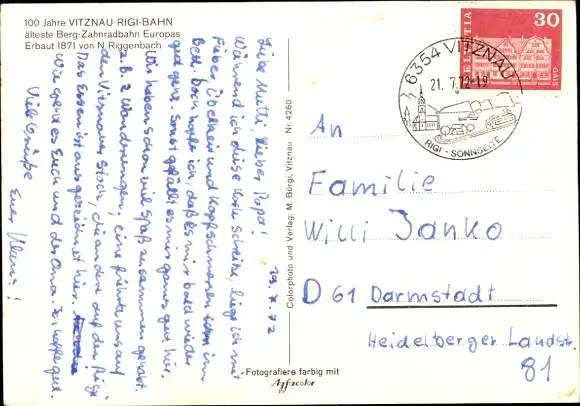 100 Jahre VITZNAU-RIGI-BAHN
älteste Berg-Zahnradbahn Europas
Erbaut 1871 von N. Riggenbach
19.7.72
Liebe Mutti, lieber Papa!
Während ich diese Karte schreibe, liege ich mit
Fieber, Übelkeit und Kopfschmerzen im
Bett. Doch hoffe ich, daß es mir bald wieder
gut geht. Sonst gefällt es mir ganz gut hier.
Wir haben schon viel Spaß zusammen gehabt.
z.B. 2 Wanderungen; eine führte uns auf
den Vitznauer Stock, die andere auf den Rigi
Das Essen ist ausgezeichnet hier.
Wie geht es Euch und der Oma. Ich hoffe gut.
Viele Grüße
Euer Klaus!
Colorphoto und Verlag: M. Bürgi, Vitznau Nr. 4260
Fotografiere farbig mit
Agfacolor
HELVETIA
30
GAIS
6354 VITZNAU
21.7.72-19
RIGI-SONNSEITE
An
Familie
Willi Janko
D 61 Darmstadt
Heidelberger Landstr.
81